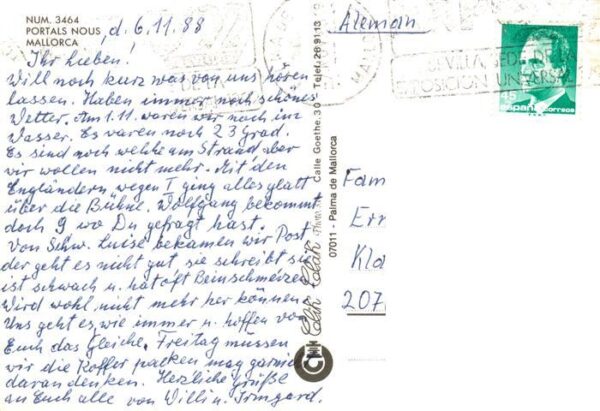 NUM. 3464
PORTALS NOUS
MALLORCA
d. 6.11.88
Ihr Lieben!
Will noch kurz was von uns hören
lassen. Haben immer noch schönes
Wetter. Am 1.11. waren wir noch im
Wasser. Es waren noch 23 Grad.
Es sind noch welche am Strand aber
wir wollen nicht mehr. Mit den
Engländern wegen T ging alles glatt
über die Bühne. Wolfgang bekommt
doch 9 wo Du gefragt hast.
Von Schw. Luise bekamen wir Post
der geht es nicht gut sie schreibt sie
ist schwach u. hat oft Beinschmerzen
Wird wohl nicht mehr her können.
Uns geht es wie immer u. hoffen von
Euch das Gleiche. Freitag müssen
wir die Koffer packen mag garnicht
daran denken. Herzliche Grüße
an Euch alle von Willi u. Irmgard.
Clik Clak
Calle Goethe, 30 Telef. 28 91 13
07011 - Palma de Mallorca
Aleman
SEVILLA SEDE DE LA
EXPOSICION UNIVERSAL
España correos
Fam
Err
Kla
207